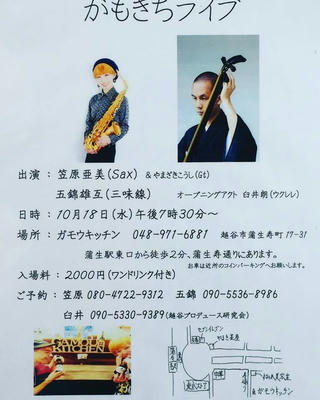 がもきちライブ
出演 : 笠原亜美(Sax) &やまざきこうし(Gt)
五錦雄互(三味線) オープニングアクト 臼井朗(ウクレレ)
日時 : 10月18日(水)午後7時30分〜
場所 : ガモウキッチン 048-971-6881 越谷市蒲生寿町 17-31
蒲生駅東口から徒歩2分、蒲生寿通りにあります。
お車は近所のコインパーキングへお願いします。
入場料 : 2000円(ワンドリンク付き)
ご予約 : 笠原 080-4722-9312 五錦 090-5536-8986
臼井 090-5330-9389(越谷プロデュース研究会)
GAMOU
KITCHEN
セブンイレブン
蒲生駅
ガモウキッチン